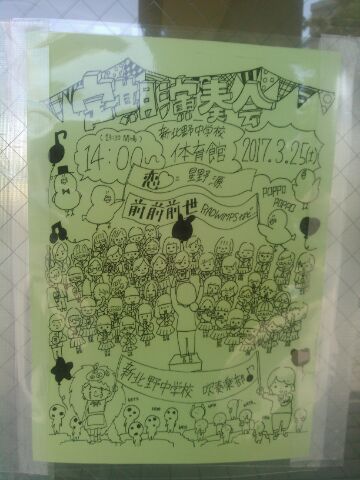 定期演奏会
新北野中学校
体育館
(13:30 開場)
14:00〜
2017.3.25(土)
恋 星野 源
前前前世 RADWIMPS etc.
POPPO
POPPO
新北野中学校 吹奏楽部